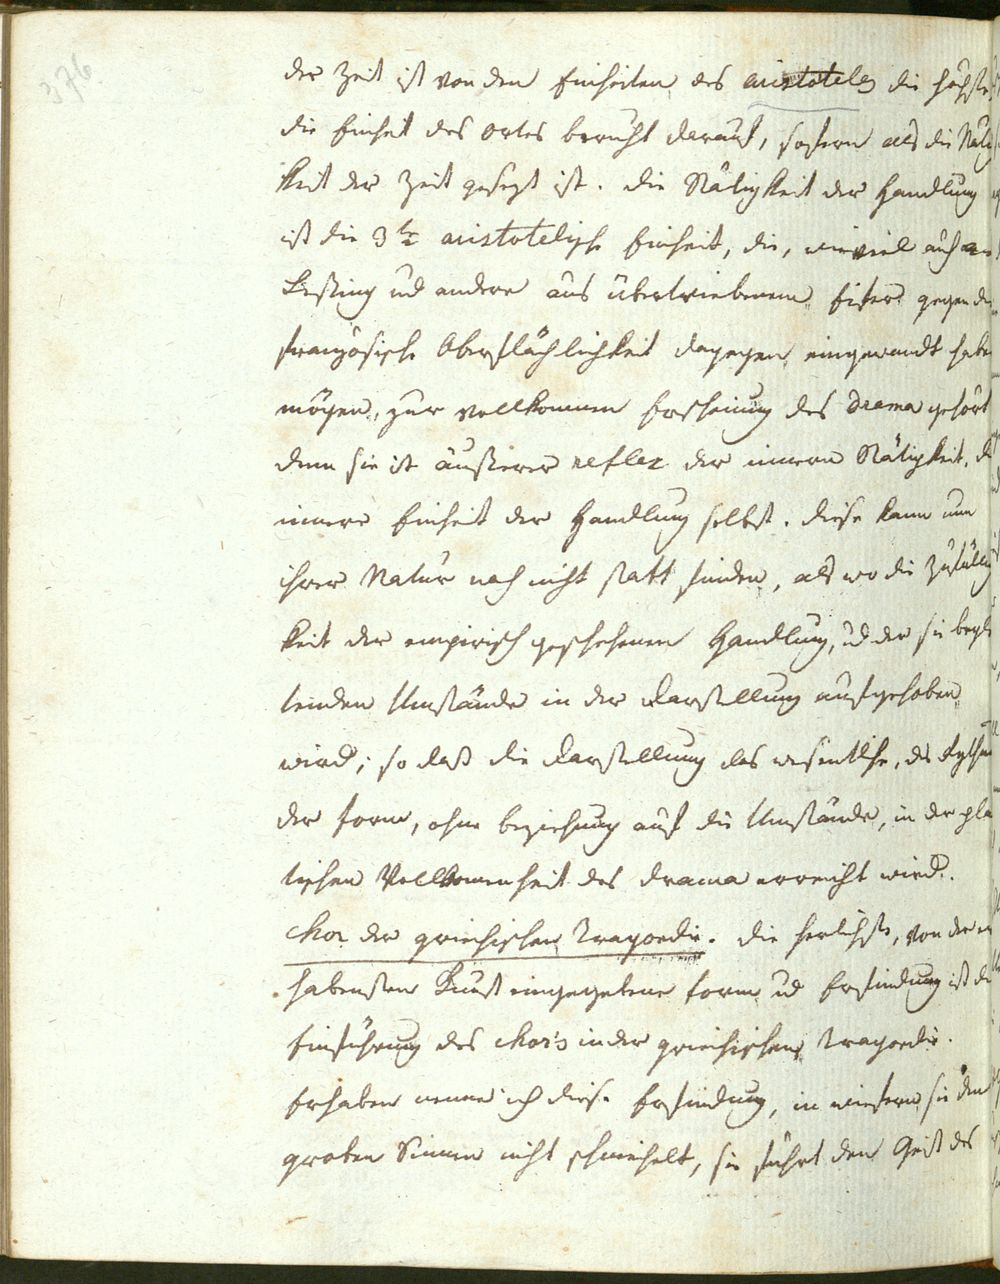 376
der Zeit ist von den Einheiten des aristoteles die höchste
die Einheit des Ortes beruht darauf, sofern als die Stätig
keit der Zeit gesezt ist. die Stätigkeit der Handlung
ist die 3te aristotelische Einheit, die, wieviel auch
Lessing ud andere aus übertriebenem Eifer gegen die
französische Oberflächlichkeit dagegen eingewandt haben
mögen, zur vollkommen Erscheinung des Drama gehört
denn sie ist äußerer reflex der innern Stätigkeit, d
innere Einheit der Handlung selbst. diese kann nun
ihrer Natur nach nicht statt finden, als wo die Zufällig
keit der empirisch geschehenen Handlung, ud der sie beglei
tenden Umstände in der Darstellung aufgehoben
wird; so daß die Darstellung des wesentliche, des Rythm
der form, ohne beziehung auf die Umstände, in der pla
tischen Vollkommenheit des Drama erreicht wird.
Chor der griechischen Tragoedie. die herlichste, von der er
habensten Kunst eingegebene form ud Erfindung ist di
Einführung des chor's in der griechischen Tragoedie.
Erhaben nenne ich diese Erfindung, in wiefern sie den
groben Sinnen nicht schmeichelt, sie führt den Geist des